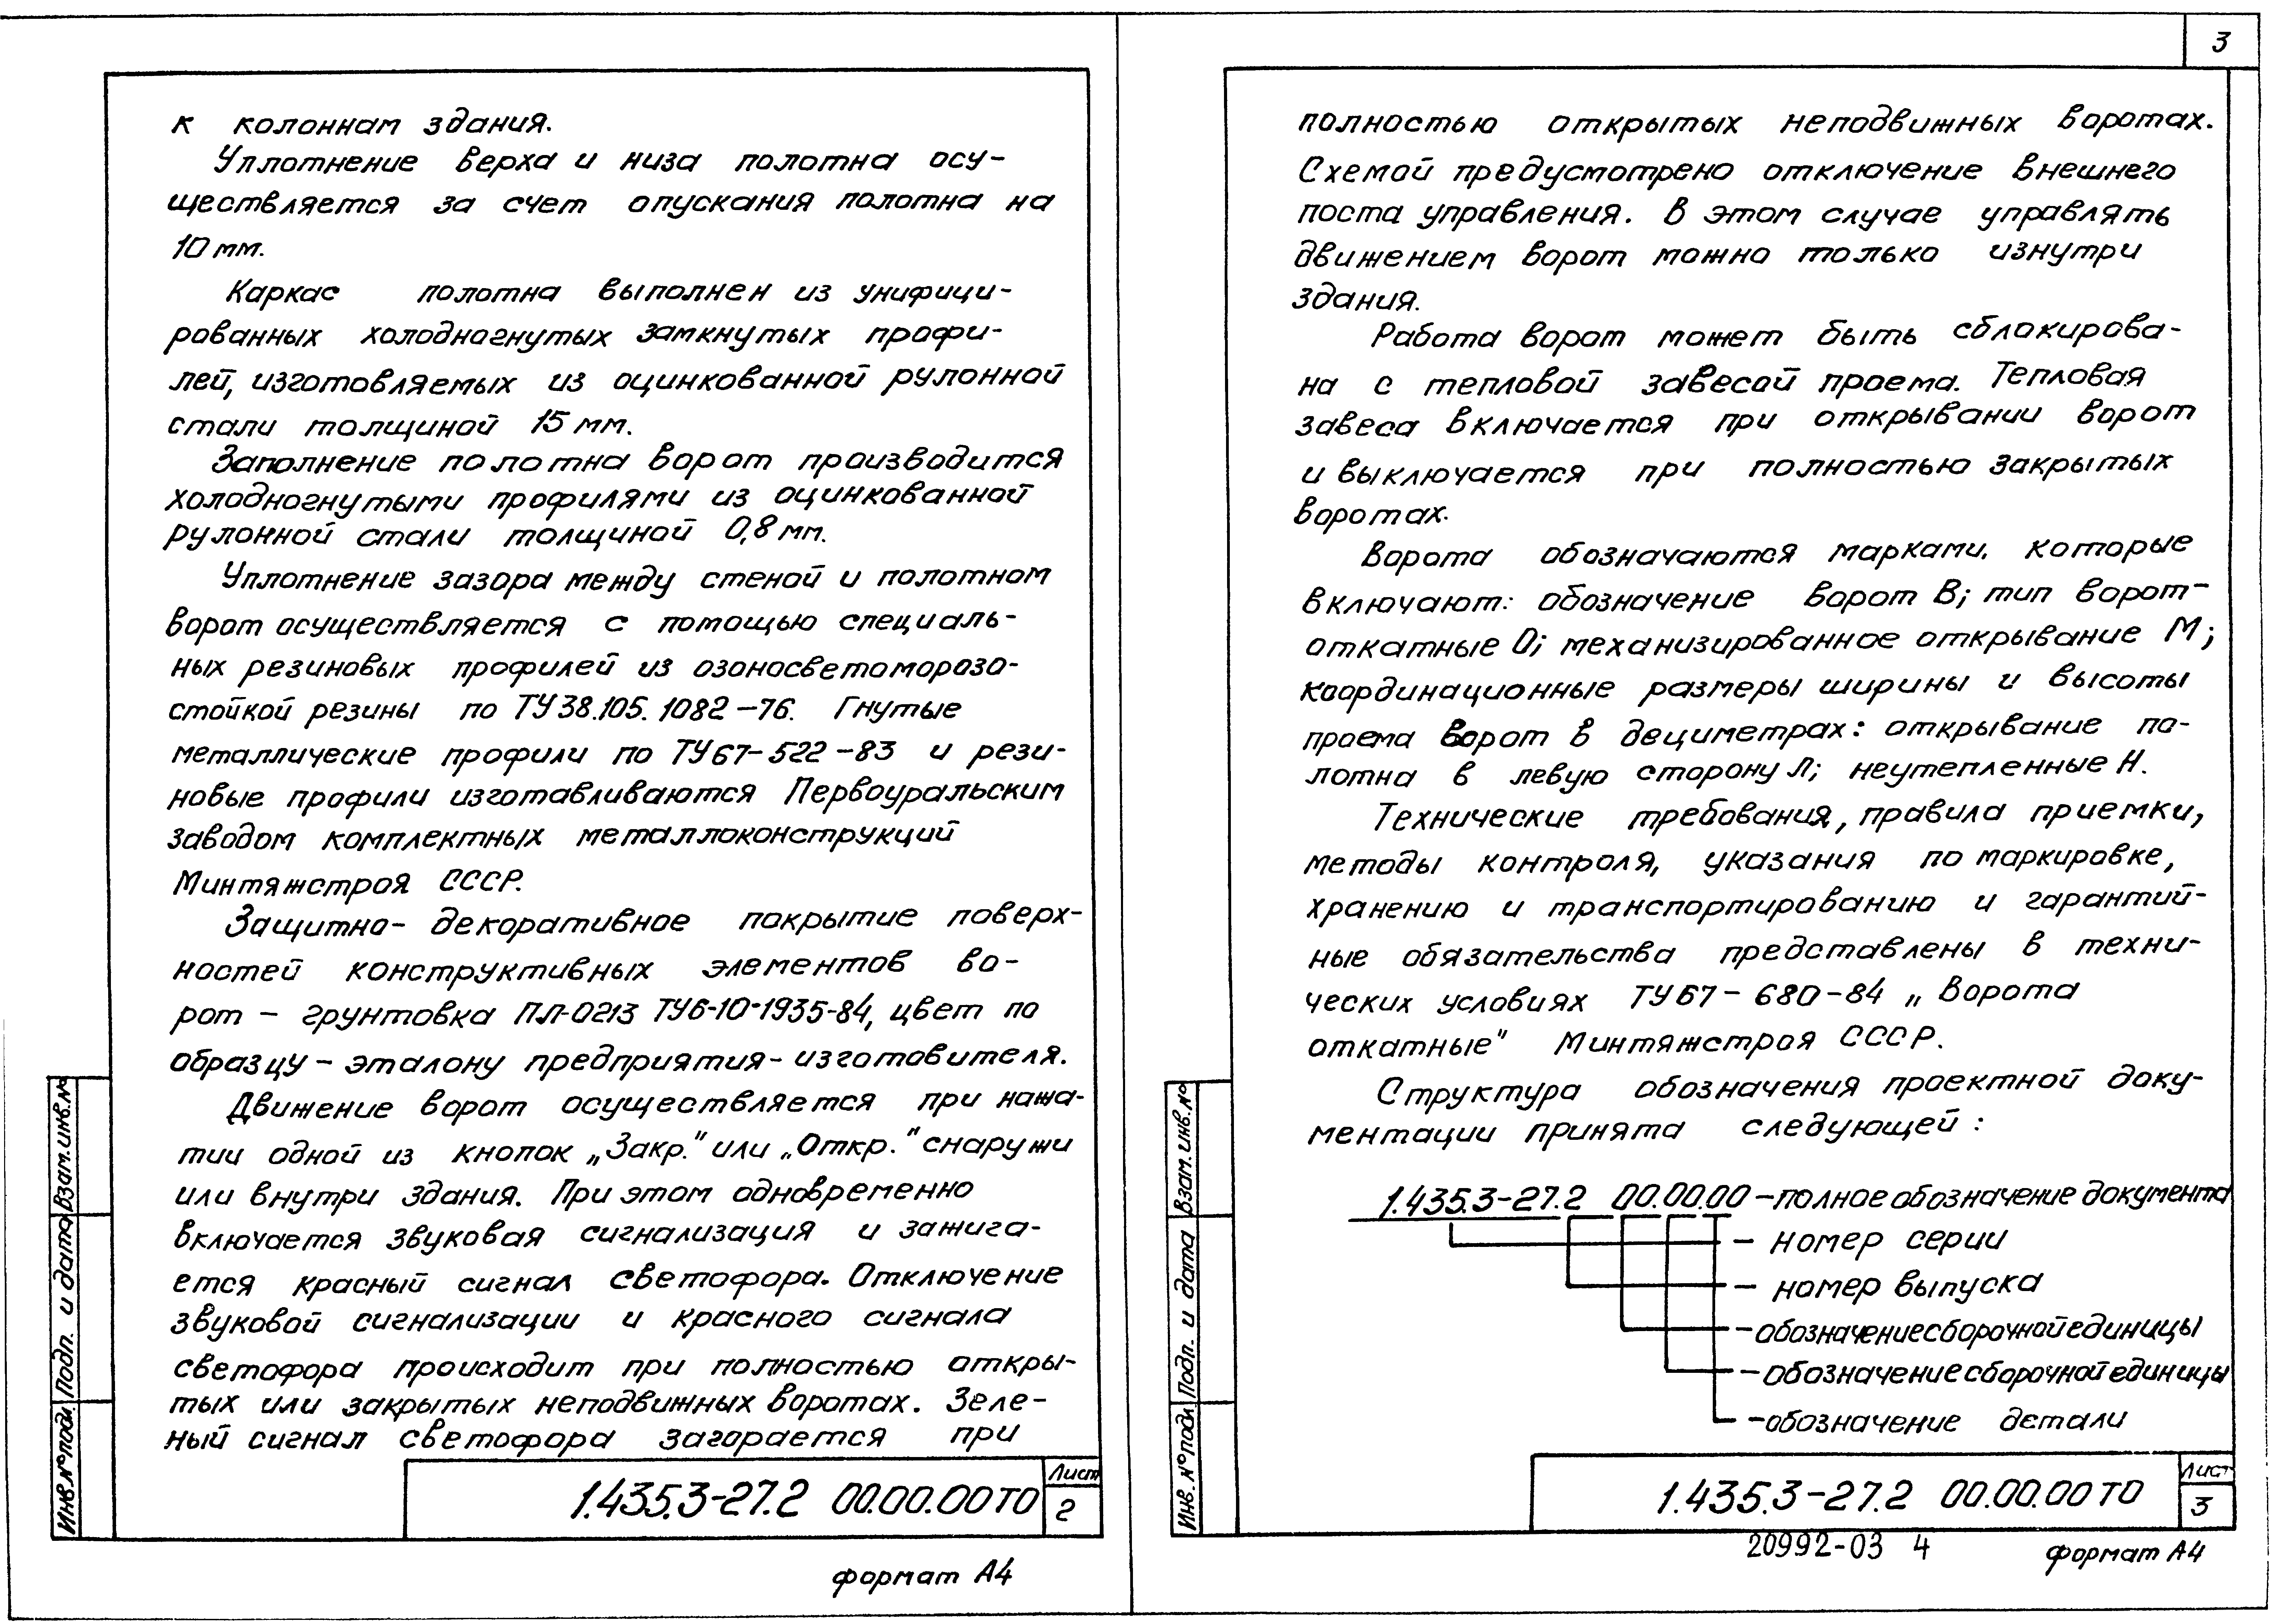 к колоннам здания.
Уплотнение верха и низа полотна осу-
ществляется за счет опускания полотна на
10 мм.
Каркас полотна выполнен из унифици-
рованных холодногнутых замкнутых профи-
лей, изготовляемых из оцинкованной рулонной
стали толщиной 15 мм.
Заполнение полотна ворот производится
холодногнутыми профилями из оцинкованной
рулонной стали толщиной 0,8 мм.
Уплотнение зазора между стеной и полотном
ворот осуществляется с помощью специаль-
ных резиновых профилей из озоносветоморозо-
стойкой резины по ТУ 38.105.1082-76. Гнутые
металлические профили по ТУ 67-522-83 и рези-
новые профили изготавливаются Первоуральским
заводом комплектных металлоконструкций
Минтяжстроя СССР.
Защитно-декоративное покрытие поверх-
ностей конструктивных элементов во-
рот - грунтовка ПЛ-0213 ТУ6-10-1935-84, цвет по
образцу - эталону предприятия-изготовителя.
Движение ворот осуществляется при нажа-
тии одной из кнопок „Закр." или „Откр." снаружи
или внутри здания. При этом одновременно
включается звуковая сигнализация и зажига-
ется красный сигнал светофора. Отключение
звуковой сигнализации и красного сигнала
светофора происходит при полностью откры-
тых или закрытых неподвижных воротах. Зеле-
ный сигнал светофора загорается при
Инв. № подл. Подп. и дата Взам. инв. №
1.435.3-27.2 00.00.00 ТО
Лист
2
формат А4
3
полностью открытых неподвижных воротах.
Схемой предусмотрено отключение внешнего
поста управления. В этом случае управлять
движением ворот можно только изнутри
здания.
Работа ворот может быть сблокирова-
на с тепловой завесой проема. Тепловая
завеса включается при открывании ворот
и выключается при полностью закрытых
воротах.
Ворота обозначаются марками, которые
включают: обозначение ворот В; тип ворот-
откатные О; механизированное открывание М;
координационные размеры ширины и высоты
проема ворот в дециметрах: открывание по-
лотна в левую сторону Л; неутепленные Н.
Технические требования, правила приемки,
методы контроля, указания по маркировке,
хранению и транспортированию и гарантий-
ные обязательства представлены в техни-
ческих условиях ТУ 67-680-84 „Ворота
откатные" Минтяжстроя СССР.
Структура обозначения проектной доку-
ментации принята следующей:
1.435.3-27.2 00.00.00 - полное обозначение документа
- номер серии
- номер выпуска
- обозначение сборочной единицы
- обозначение сборочной единицы
- обозначение детали
Инв. № подл. Подп. и дата Взам. инв. №
1.435.3-27.2 00.00.00 ТО
Лист
3
20992-03 4
формат А4